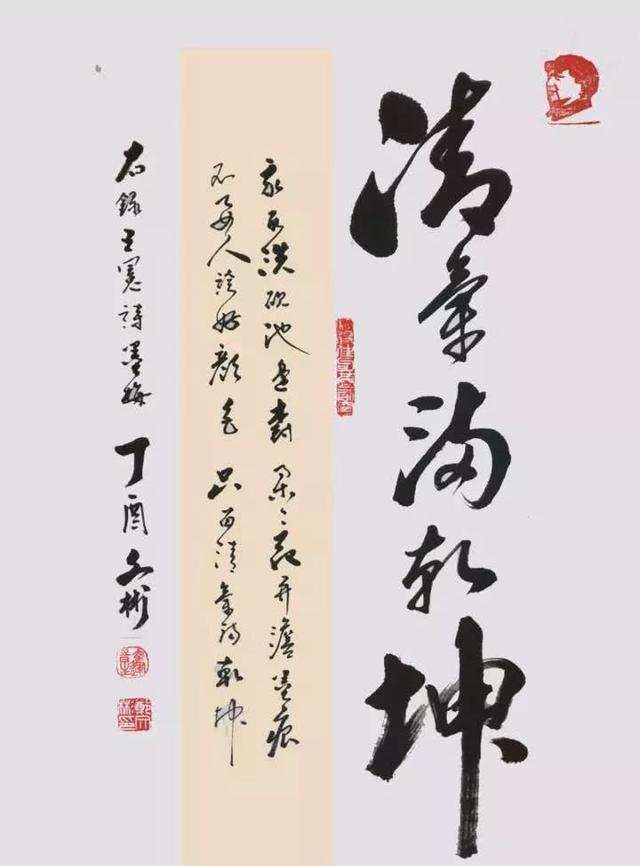 清氣满乾坤
我家洗砚池邊樹 朵々花开澹墨痕
不要人誇好顏色 只留清氣满乾坤
右錄王冕詩墨梅 丁酉文彬